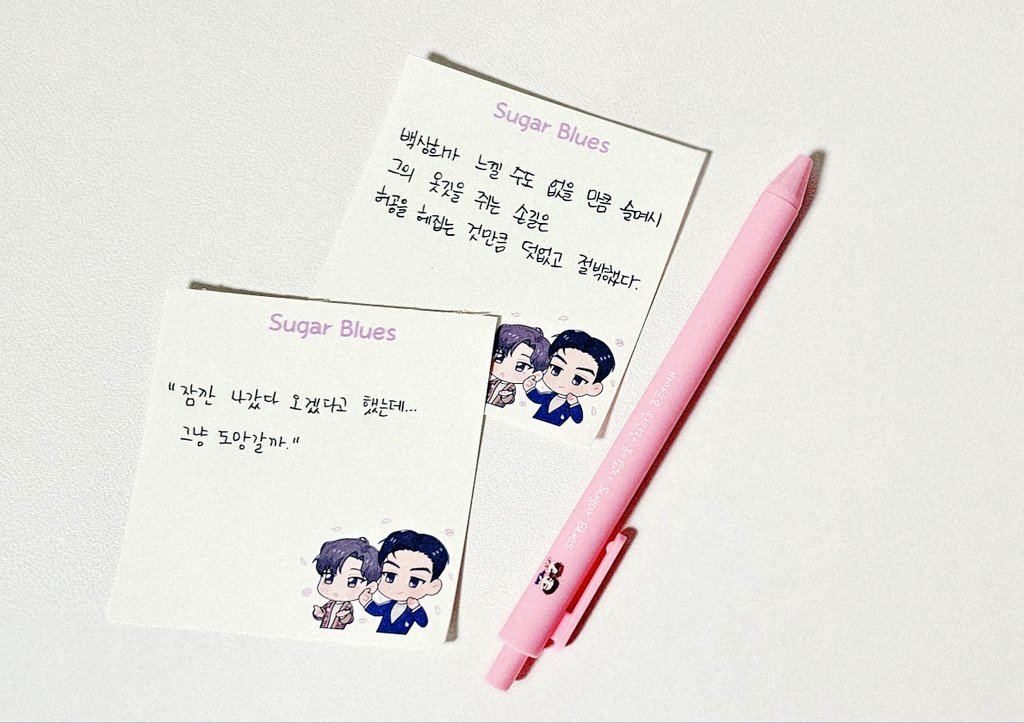 Sugar Blues
백상희가 느낄 수도 없을 만큼 슬며시
그의 옷깃을 쥐는 손길은
허공을 헤집는 것만큼 덧없고 절박했다.
Sugar Blues
"잠깐 나갔다 오겠다고 했는데...
그냥 도망갈까."
Sugar Blues